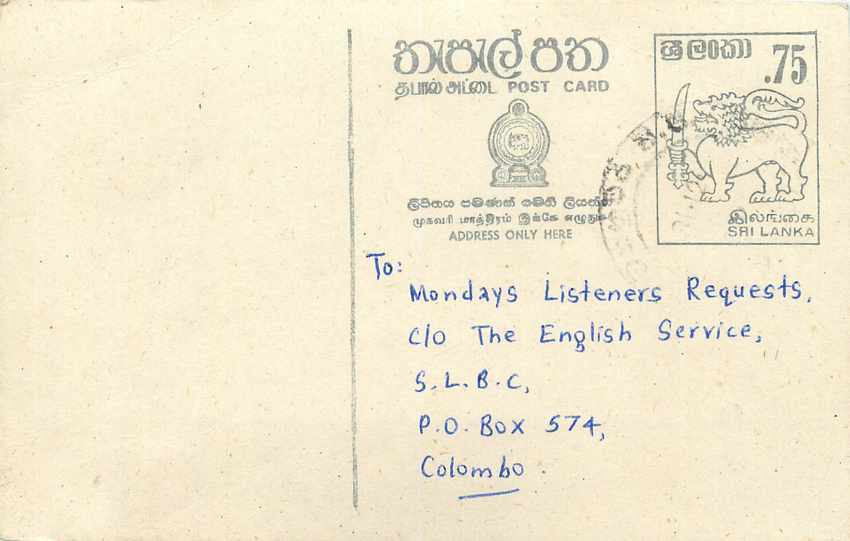 තැපැල් පත
தபால் அட்டை POST CARD
ලිපිනය පමණක් මෙහි ලියන්න
முகவரி மாத்திரம் இங்கே எழுதுக
ADDRESS ONLY HERE
ශ්‍රී ලංකා
.75
இலங்கை
SRI LANKA
To:
Mondays Listeners Requests,
C/o The English Service,
S.L.B.C,
P.O. Box 574,
Colombo.